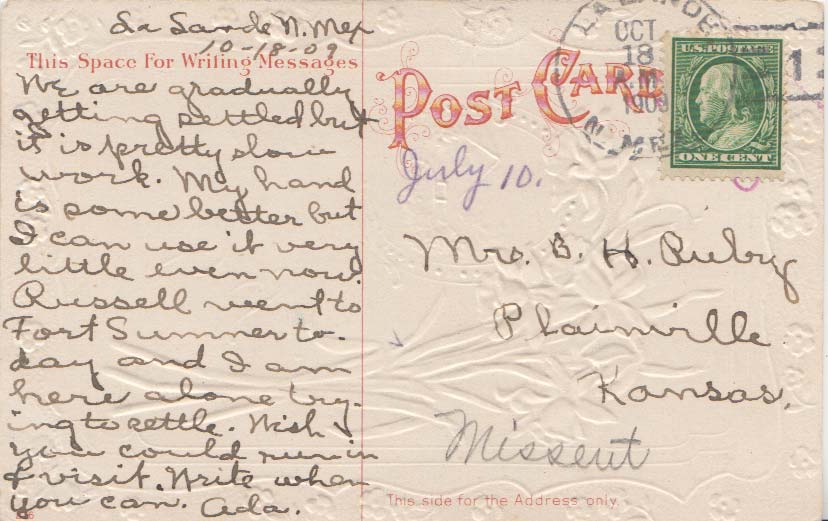 La Lande N. Mex
10-18-09
This Space For Writing Messages
We are gradually
getting settled but
it is pretty slow
work. My hand
is some better but
I can use it very
little even now.
Russell went to
Fort Sumner to-
day and I am
here alone try-
ing to settle. Wish
you could run in
& visit. Write when
you can. Ada.
POST CARD
LA LANDE
OCT
18
1909
N. MEX
12
U.S. POSTAGE
ONE CENT
July 10.
Mrs. B. H. Ruby
Plainville
Kansas.
Missent
This side for the Address only.